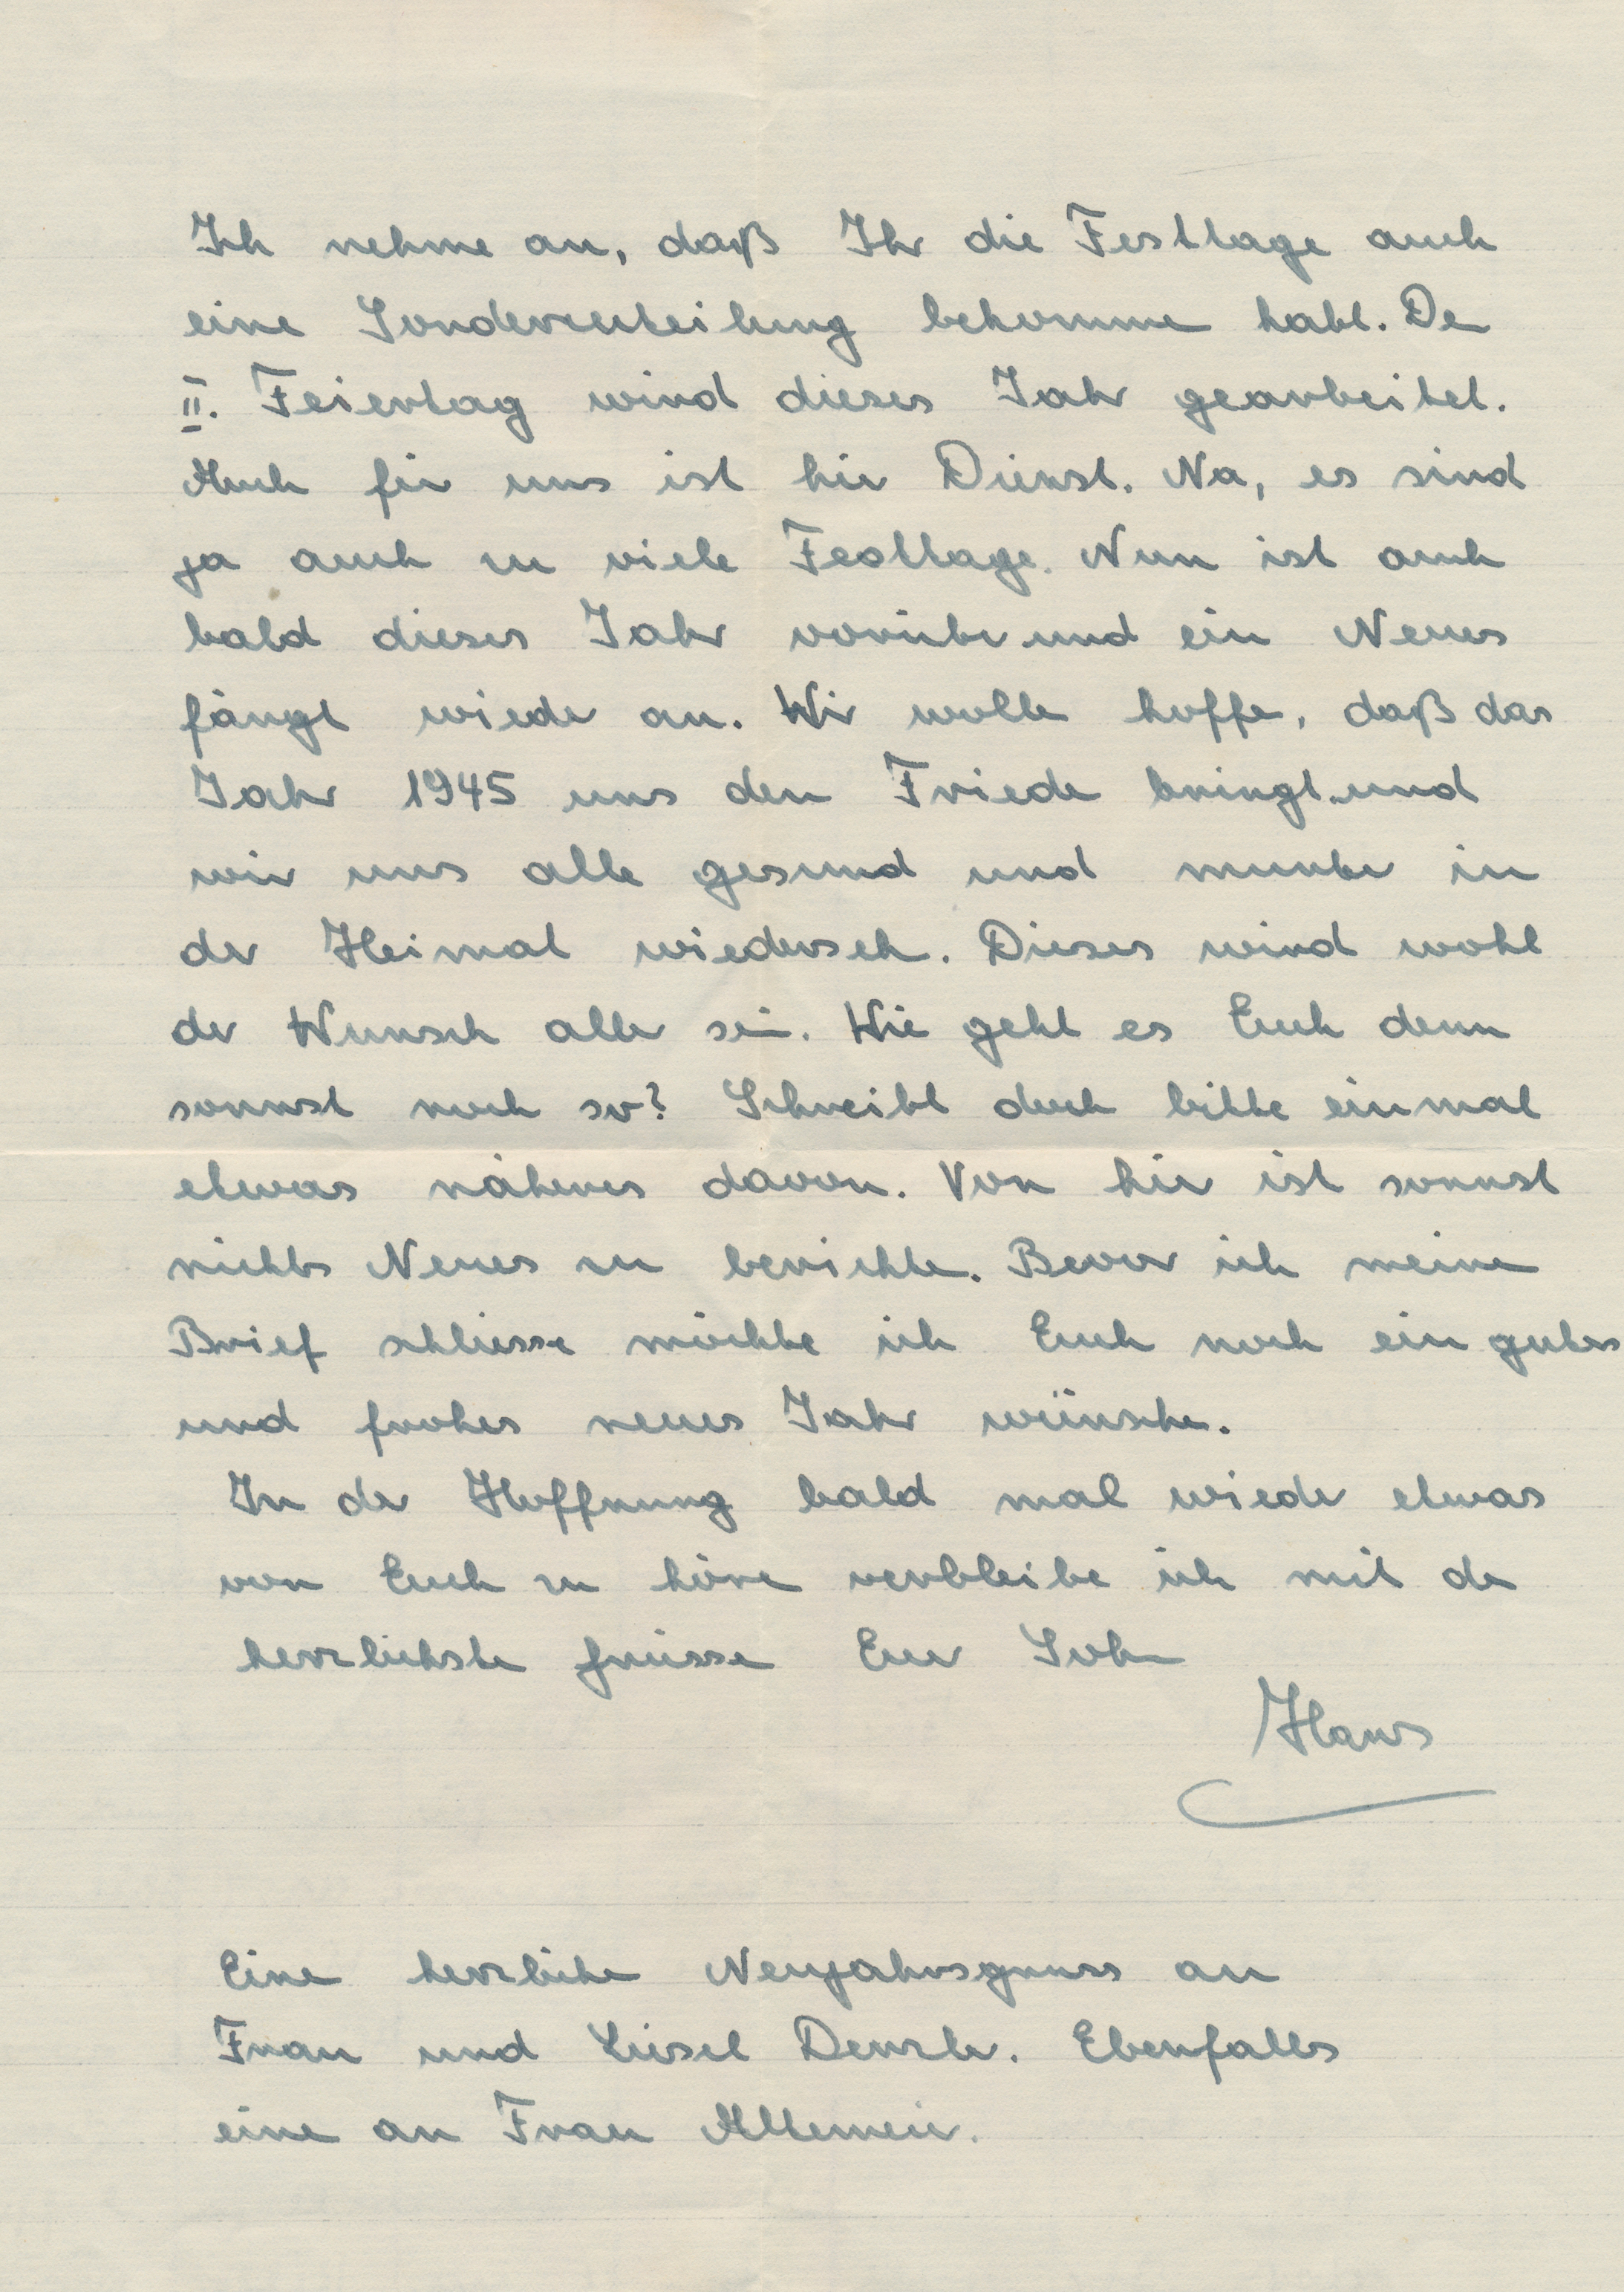 Ich nehme an, daß Ihr die Festtage auch
eine Sonderzuteilung bekommen habt. Den
II. Feiertag wird dieses Jahr gearbeitet.
Auch für uns ist hier Dienst. Na, es sind
ja auch zu viele Festtage. Nun ist auch
bald dieses Jahr vorüber und ein Neues
fängt wieder an. Wir wollen hoffen, daß das
Jahr 1945 uns den Frieden bringt und
wir uns alle gesund und munter in
der Heimat wiedersehen. Dieses wird wohl
der Wunsch aller sein. Wie geht es Euch denn
sonnst noch so? Schreibt doch bitte einmal
etwas näheres davon. Von hier ist sonnst
nichts Neues zu berichten. Bevor ich meinen
Brief schliesse möchte ich Euch noch ein gutes
und frohes neues Jahr wünschen.
In der Hoffnung bald mal wieder etwas
von Euch zu hören verbleibe ich mit den
herzlichsten Grüssen Euer Sohn
Hans
Einen herzlichen Neujahrsgruss an
Frau und Liesel Ebenfalls
einen an Frau